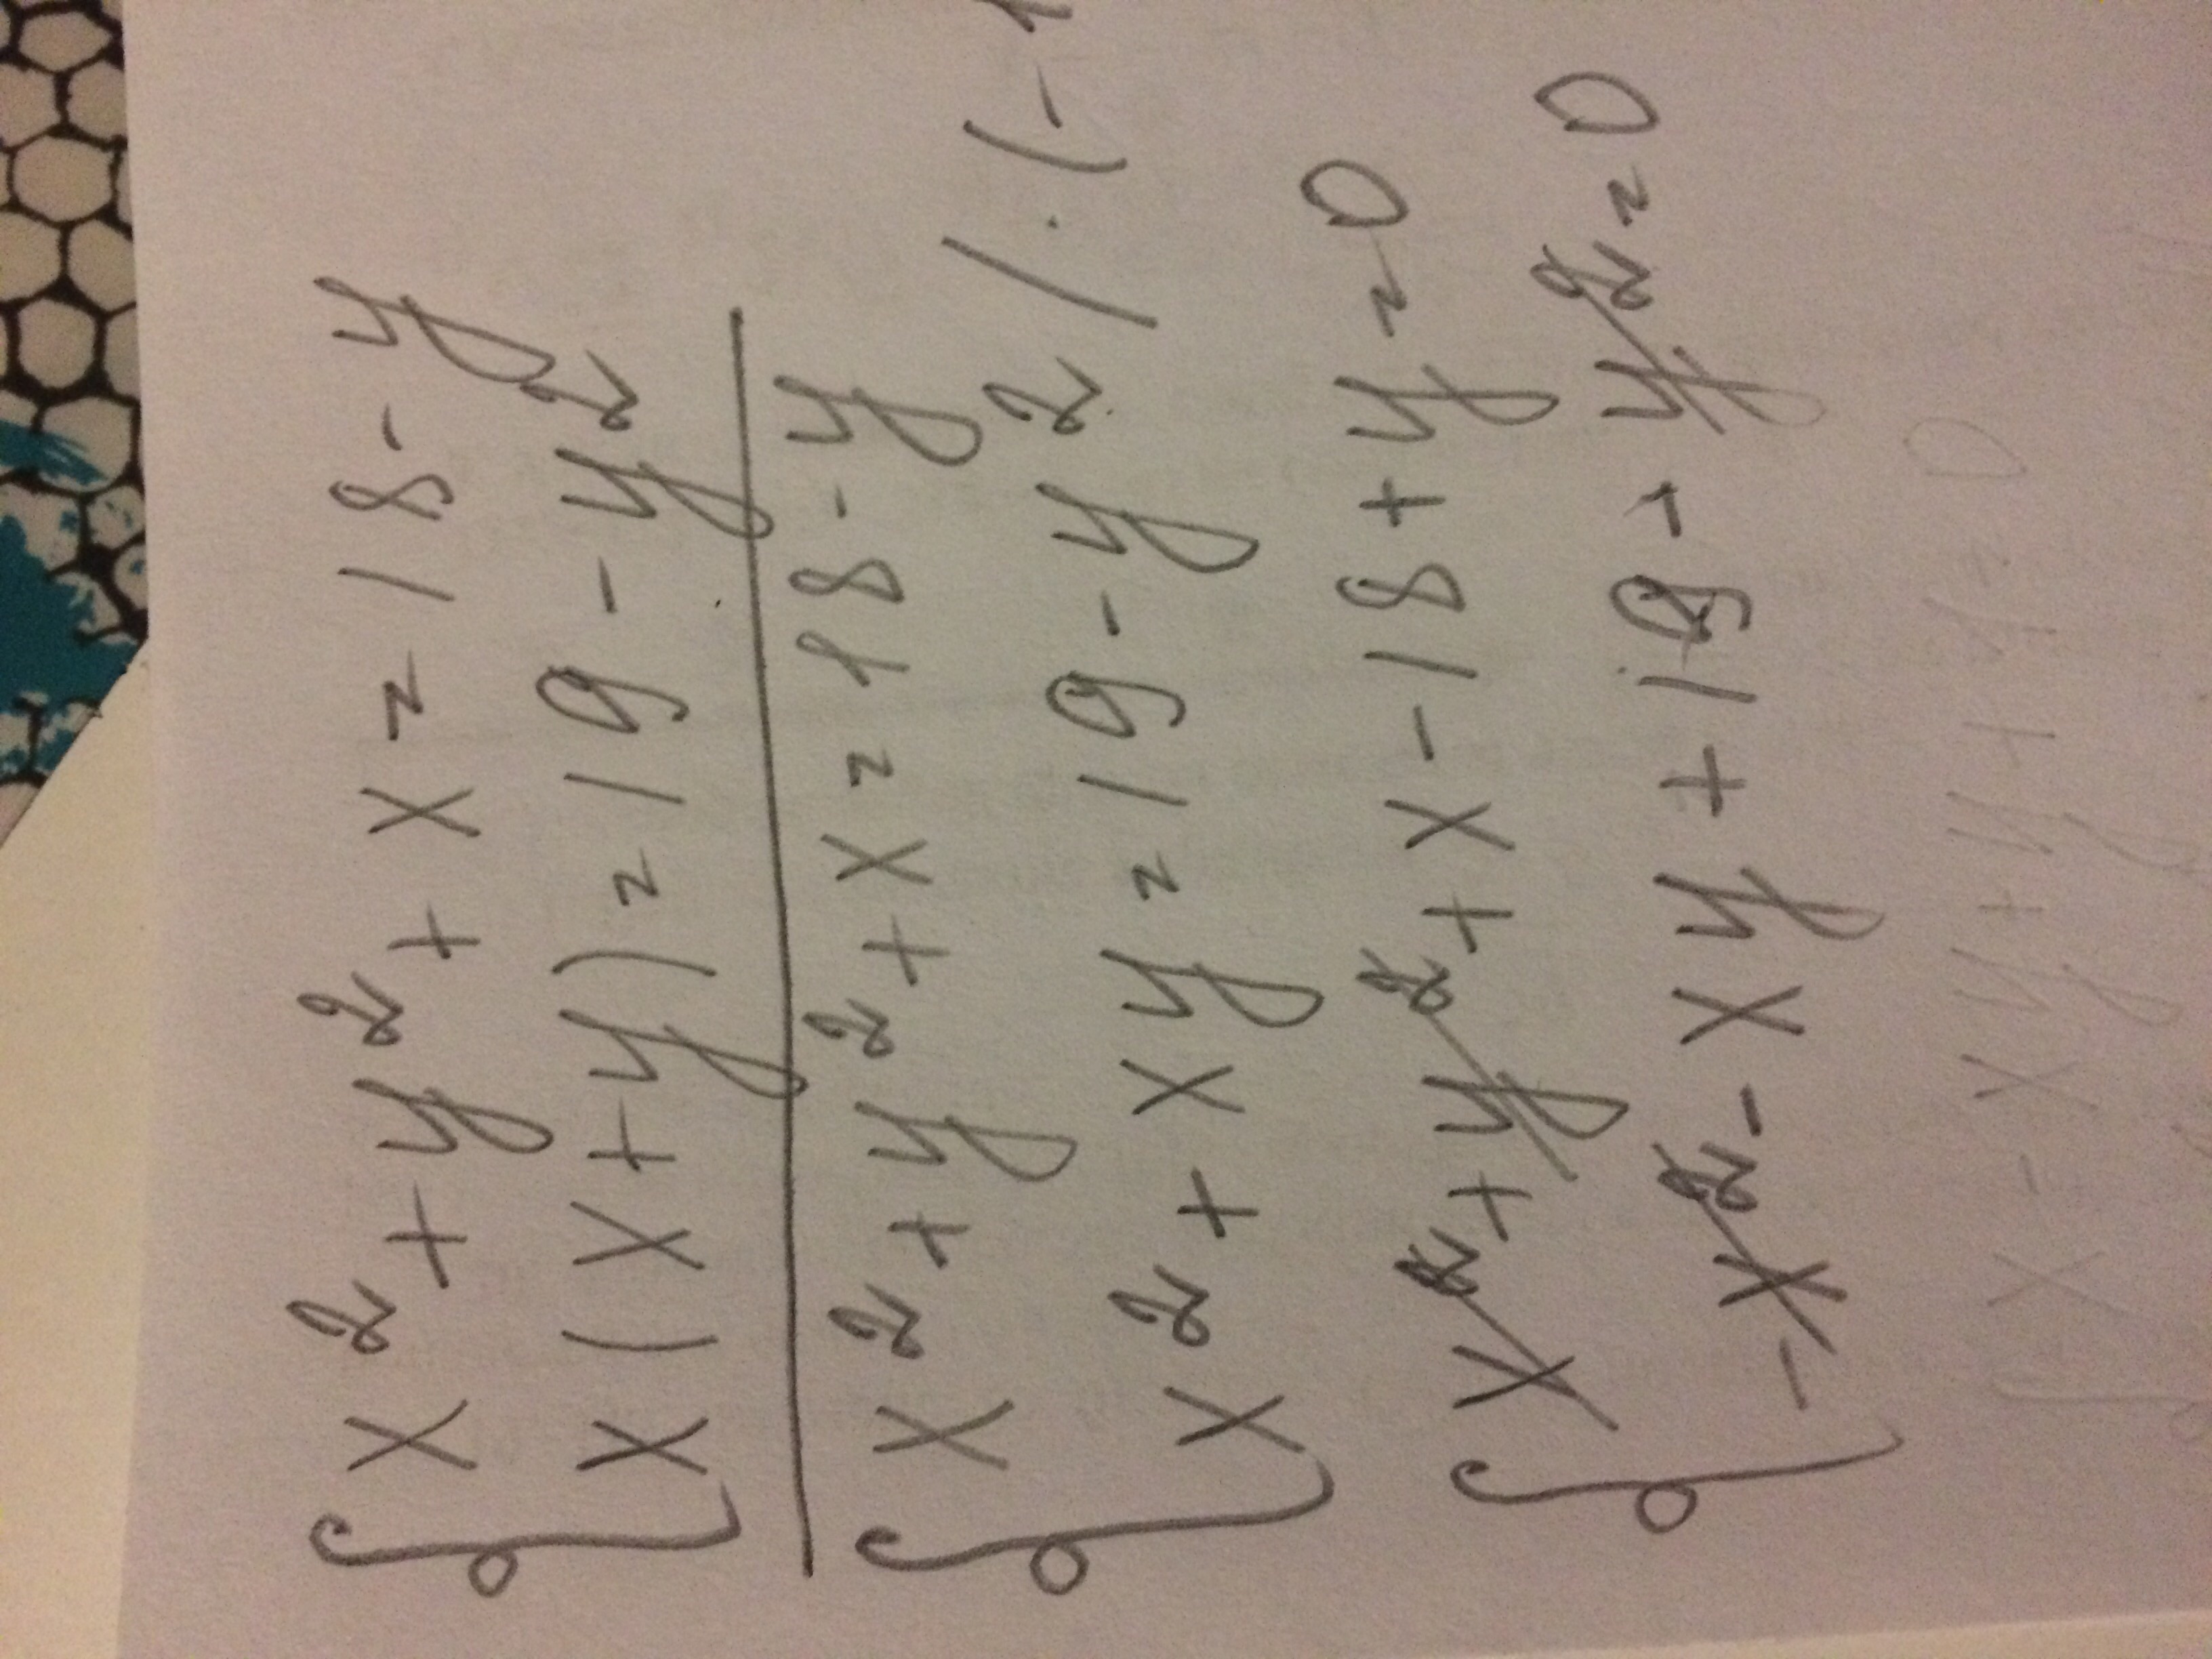 x² + y² + x = 18 - y
x(x + y) = 19 - y²
x² + y² + x = 18 - y
x² + xy = 19 - y² / · (-1
x² + y² + x - 18 + y = 0
-x² - xy + 19 + y² = 0